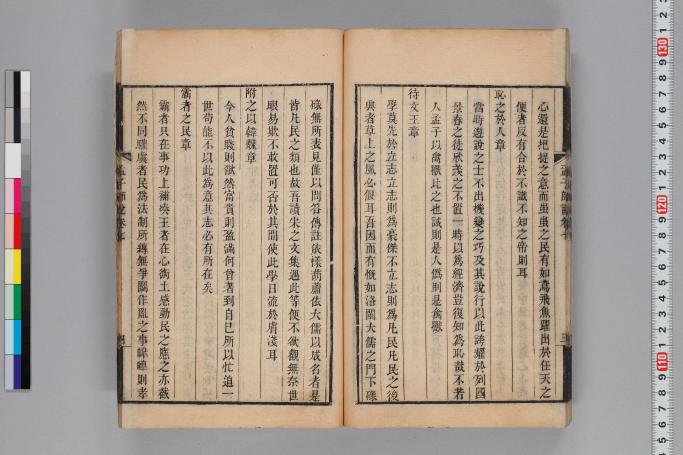 心邇是把捉之意而蚩蚩之民有如鳶飛魚躍出於任天之
便者反有合於不識不知之帝則耳
恥之於人章
當時遊說之士不出機變之巧及其說行以此誇耀於列國
景春之徒欣羨之不置一時以為經濟豈復知為恥哉不若
人孟子以禽獸比之也誠則是人偽則是禽獸
待文王章
學莫先於立志立志則為豪傑不立志則為凡民凡民之後
興者草上之風必偃耳吾因而有慨如洛閩大儒之門下碌
碌無所表見僅以問答傳註依樣葫蘆依大儒以成名者是
皆凡民之類也故吾讀宋之文集遇此等便不欲觀無奈世
眼易欺不敢置可否於其間使此學日流於膚淺耳
附之以韓魏章
今人貧賤則欿然富貴則盈滿何曾著到自己所以忙迫一
世苟能不以此為意其志必有所在矣
霸者之民章
霸者只在事功上補湊王者在心術上感動民之應之亦截
然不同驩虞者民為法制所縛無爭鬭作亂之事皥皥則孝
孟子師說卷七
三
孟子師說卷七